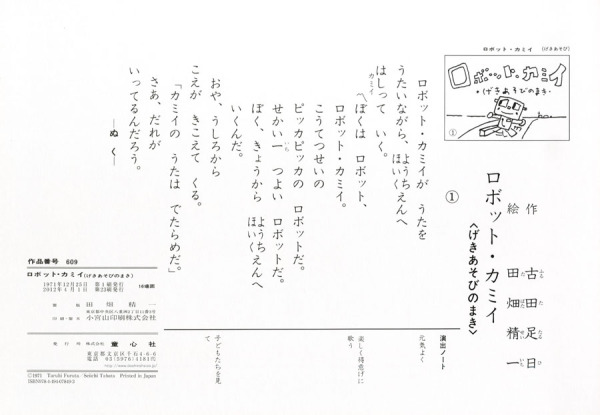 ロボット・カミイ 〈げきあそび〉
ロボット・カミイ
・げきあそびのまき・
①
作 古田足日
ふるたたるひ
絵 田畑精一
たばたせいいち
ロボット・カミイ
〈げきあそびのまき〉
①
ロボット・カミイが うたを
うたいながら、ようちえんへ
ほいく
はしって いく。
カミイ
〽ぼくは ロボット、
ロボット・カミイ。
こうてつせいの
ピッカピッカの ロボットだ。
せかい一 つよい ロボットだ。
いち
ぼく、きょうから ようちえんへ
ほいく
いくんだ。
おや、うしろから
こえが きこえて くる。
「カミイの うたは でたらめだ。」
さあ、だれが
いってるんだろう。
―ぬ く―
演出ノート
元気よく
楽しく得意げに
歌う
子どもたちを見
て
作品番号 609
ロボット・カミイ(げきあそびのまき)
1971年12月25日 第1刷発行 16場面
2012年4月1日 第23刷発行
田畑精一
印刷・製本 小宮山印刷株式会社
発行所 株式会社 童心社
東京都文京区千石4-6-6
電話 03(5976)4181代
©1971 Taruhi Furuta / Seiichi Tabata Printed in Japan